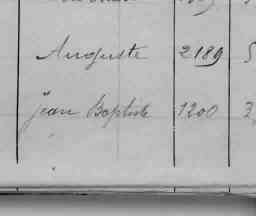 Auguste 2189 5
Jean Baptiste 1200